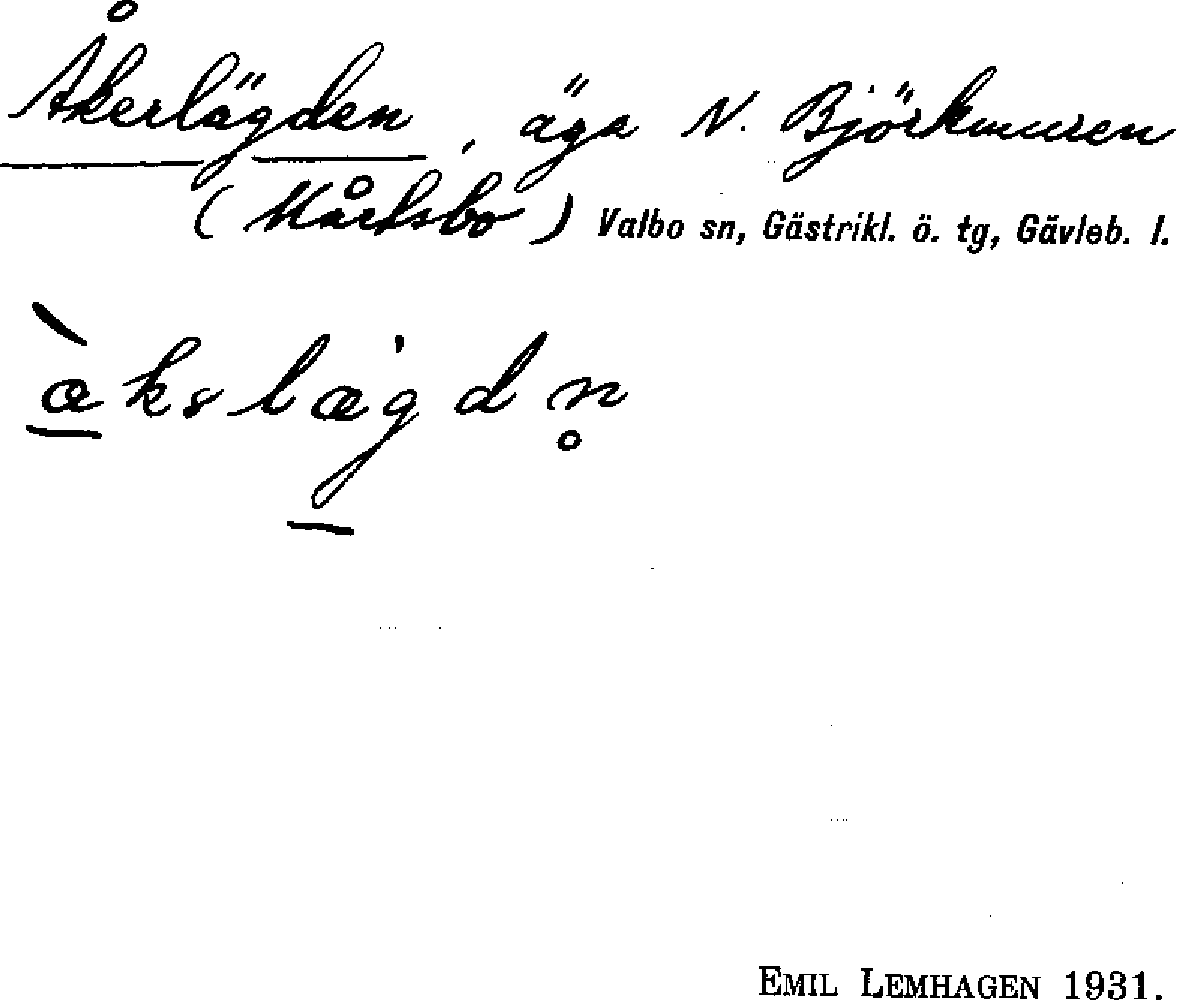 Åkerlägden, äga N. Björkmuren
(Mårtsbo) Valbo sn, Gästrikl. ö. tg, Gävleb. l.
EMIL LEMHAGEN 1931.